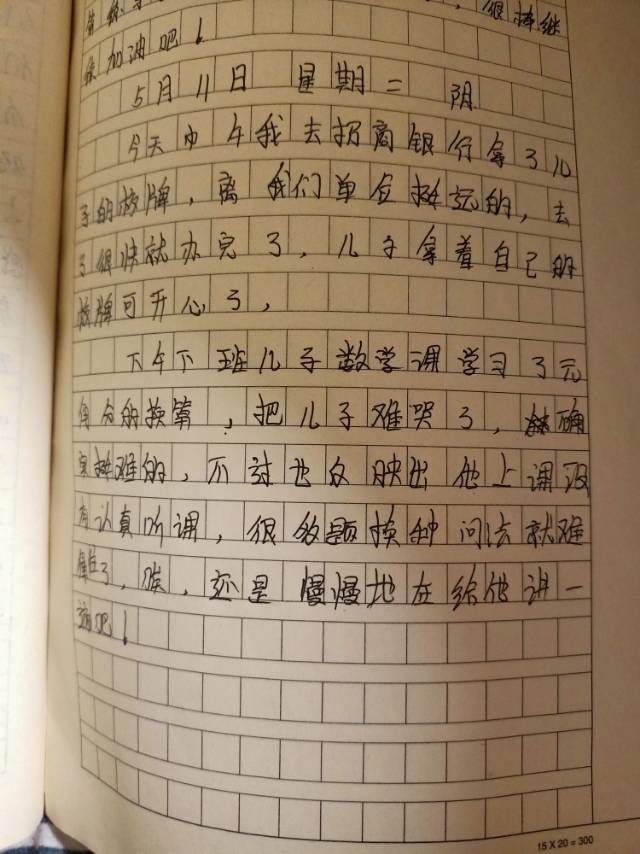 ，很棒继
续加油吧！
5月11日 星期二 阴
今天中午我去招商银行拿了儿
子的校牌，离我们单位挺远的，去
了很快就办完了，儿子拿着自己的
校牌可开心了，
下午下班儿子数学课学习了元
角分的换算，把儿子难哭了，确
实挺难的，不过也反映出他上课没
有认真听课，很多题换种问法就难
住了，唉，还是慢慢地在给他讲一
遍吧！
15 X 20 = 300